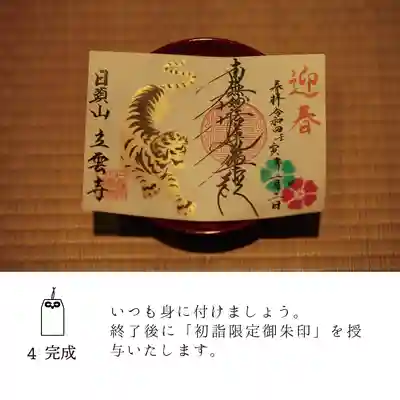 迎春
奉拝 令和四壬寅年一月一日
日頭山 立雲寺
4 完成
いつも身に付けましょう。
終了後に「初詣限定御朱印」を授
与いたします。